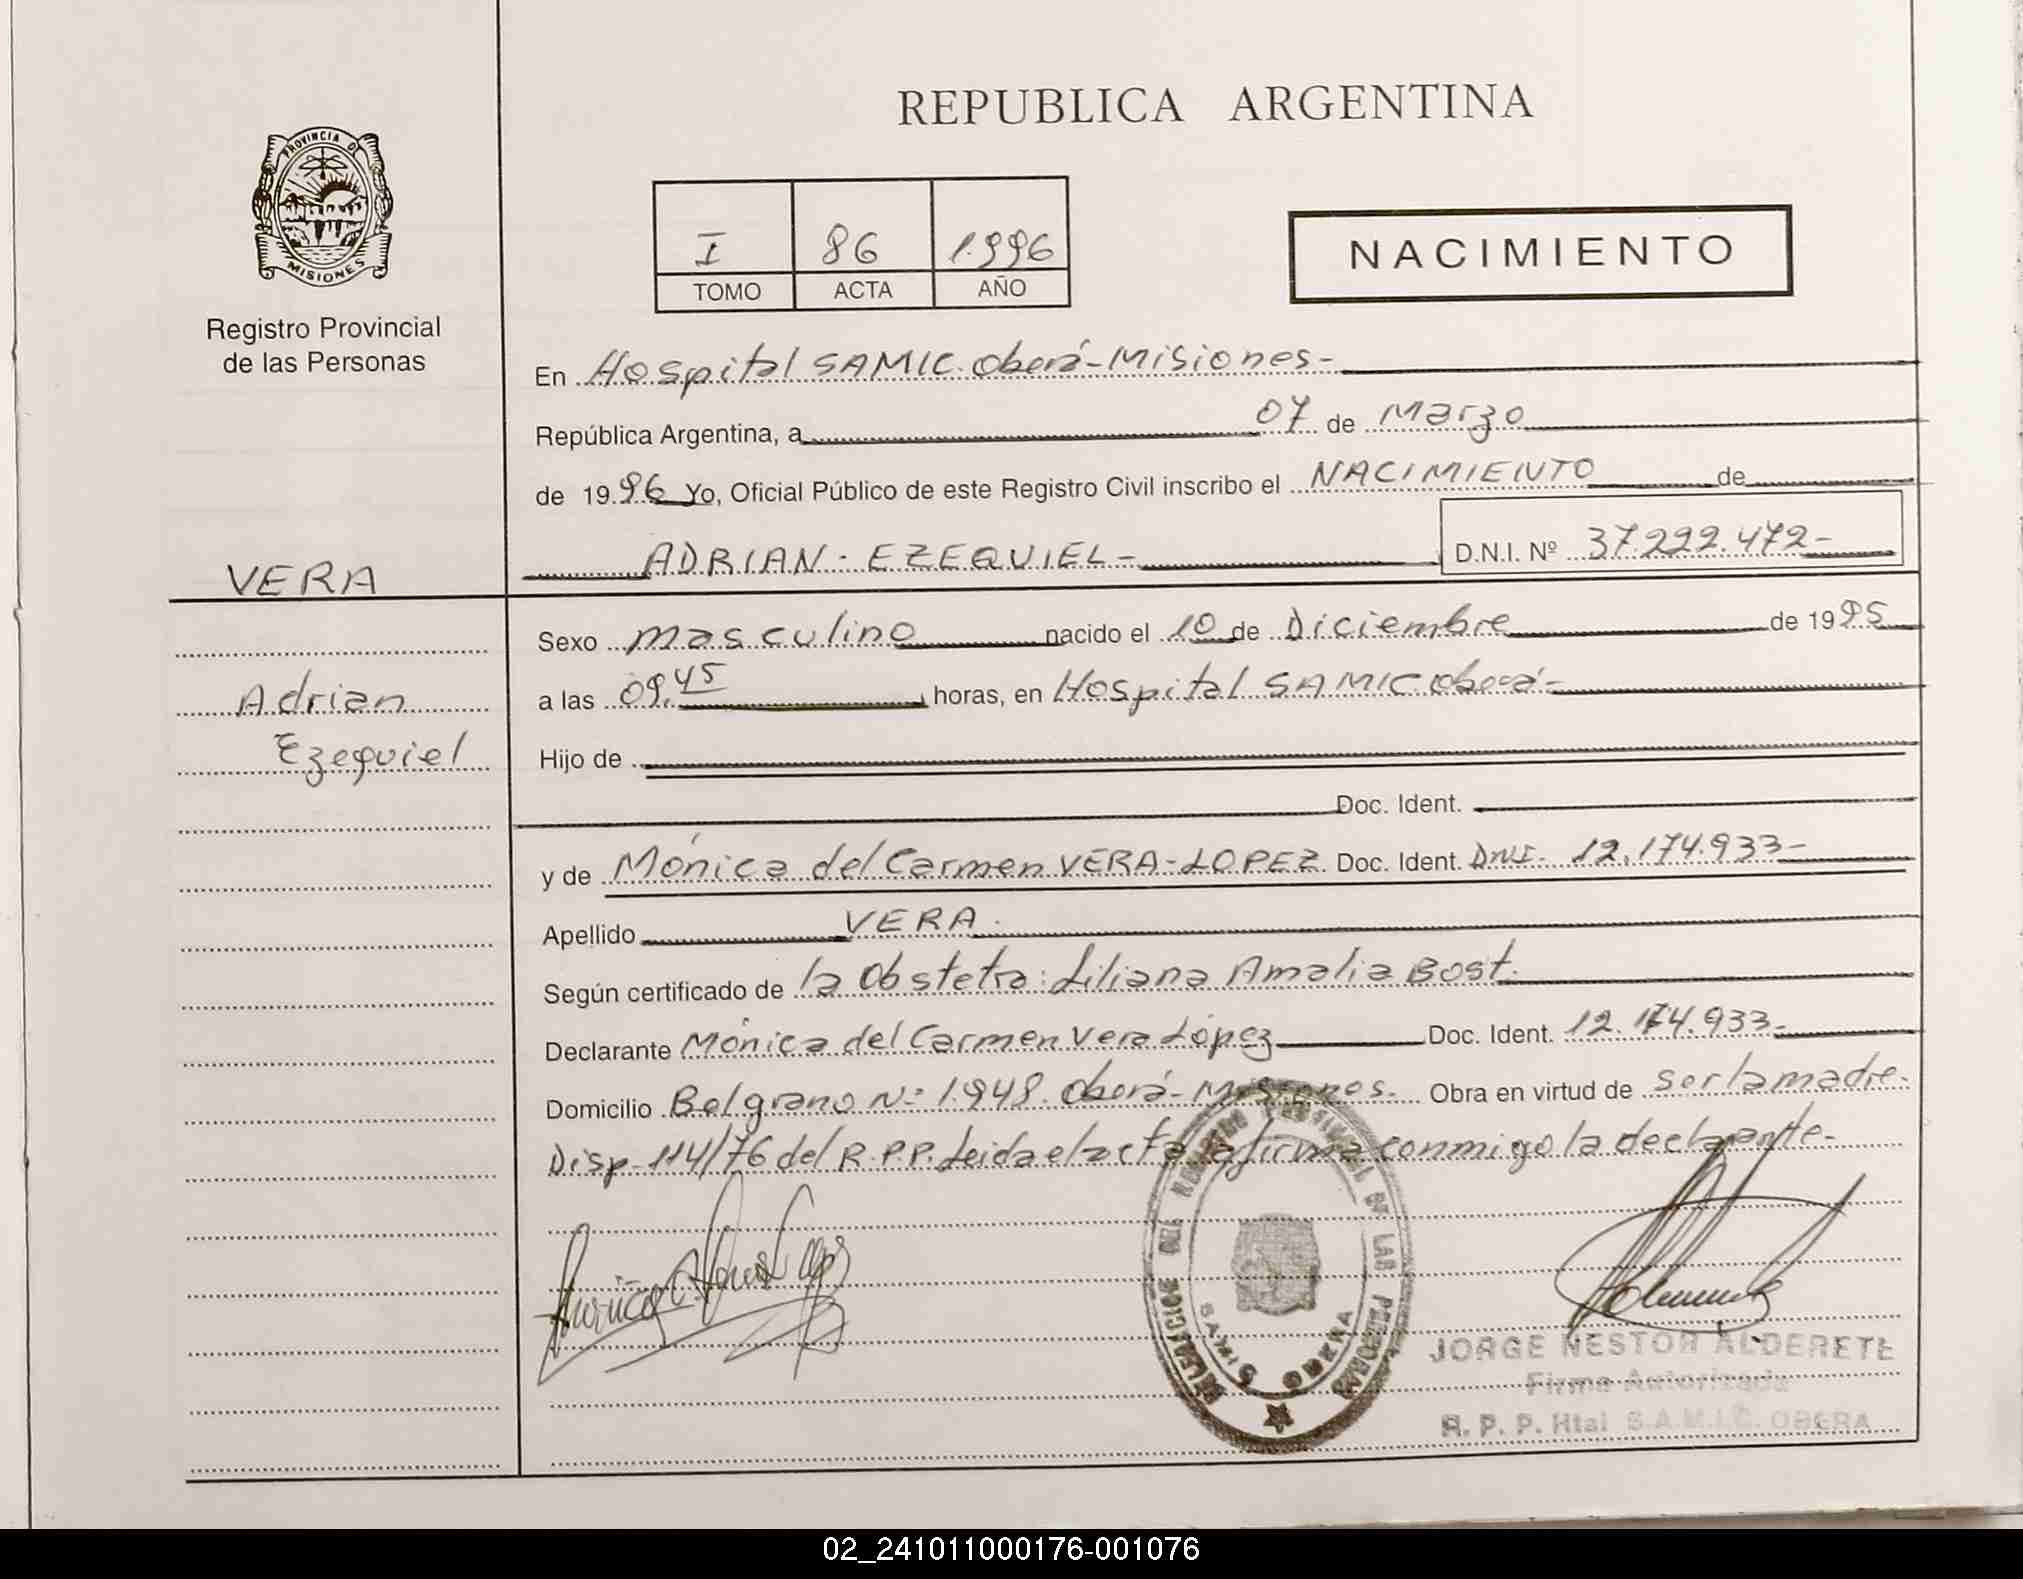 REPUBLICA ARGENTINA
PROVINCIA DE
MISIONES
Registro Provincial
de las Personas
I 86 1.996
TOMO ACTA AÑO
NACIMIENTO
En Hospital SAMIC. Oberá-Misiones-
República Argentina, a 07 de Marzo
de 1996 Yo, Oficial Público de este Registro Civil inscribo el NACIMIENTO de
VERA
ADRIAN - EZEQUIEL- D.N.I. Nº 37.222.472-
Sexo masculino nacido el 10 de Diciembre de 1995
Adrian
Ezequiel
a las 09,45 horas, en Hospital SAMIC. Oberá-
Hijo de
Doc. Ident.
y de Mónica del Carmen VERA-LOPEZ Doc. Ident. DNI- 12.174.933-
Apellido VERA.
Según certificado de la Obstetra: Liliana Amalia Bost.
Declarante Mónica del Carmen Vera López Doc. Ident. 12.174.933-
Domicilio Belgrano Nº 1.948. Oberá-Misiones- Obra en virtud de ser la madre-
Disp-114/76 del R.P.P. Leida el acta la firma conmigo la declarante-
REGISTRO PROVINCIAL DE LAS PERSONAS
OBERA
JORGE NESTOR ALDERETE
Firma Autorizada
R. P. P. Htal S.A.M.I.C. OBERA
02_241011000176-001076